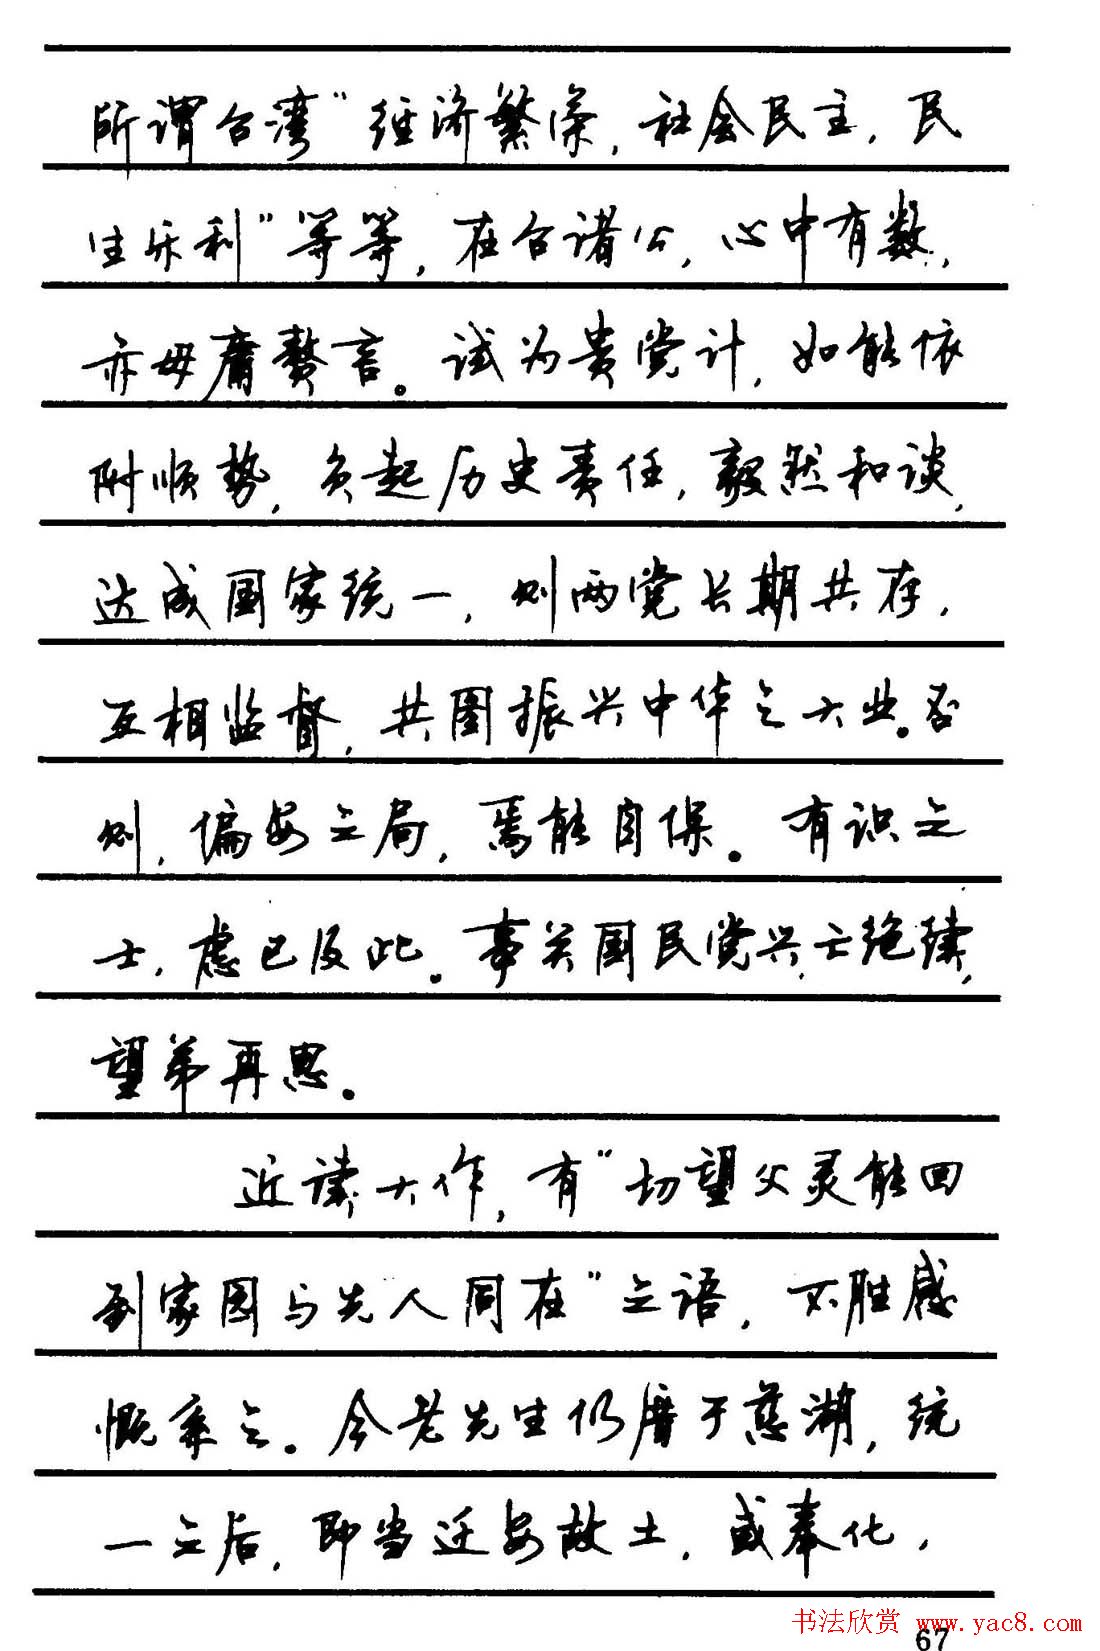 所谓台湾“经济繁荣，社会民主，民
生乐利”等等，在台诸公，心中有数，
亦毋庸赘言。试为贵党计，如能依
附顺势，负起历史责任，毅然和谈，
达成国家统一，则两党长期共存，
互相监督，共图振兴中华之大业。否
则，偏安之局，焉能自保。有识之
士，虑已及此。事关国民党兴亡绝续，
望弟再思。
近读大作，有“切望父灵能回
到家国与先人同在”之语，不胜感
慨系之。今老先生仍厝于慈湖，统
一之后，即当迁安故土，或奉化，
书法欣赏 www.yac8.com
67